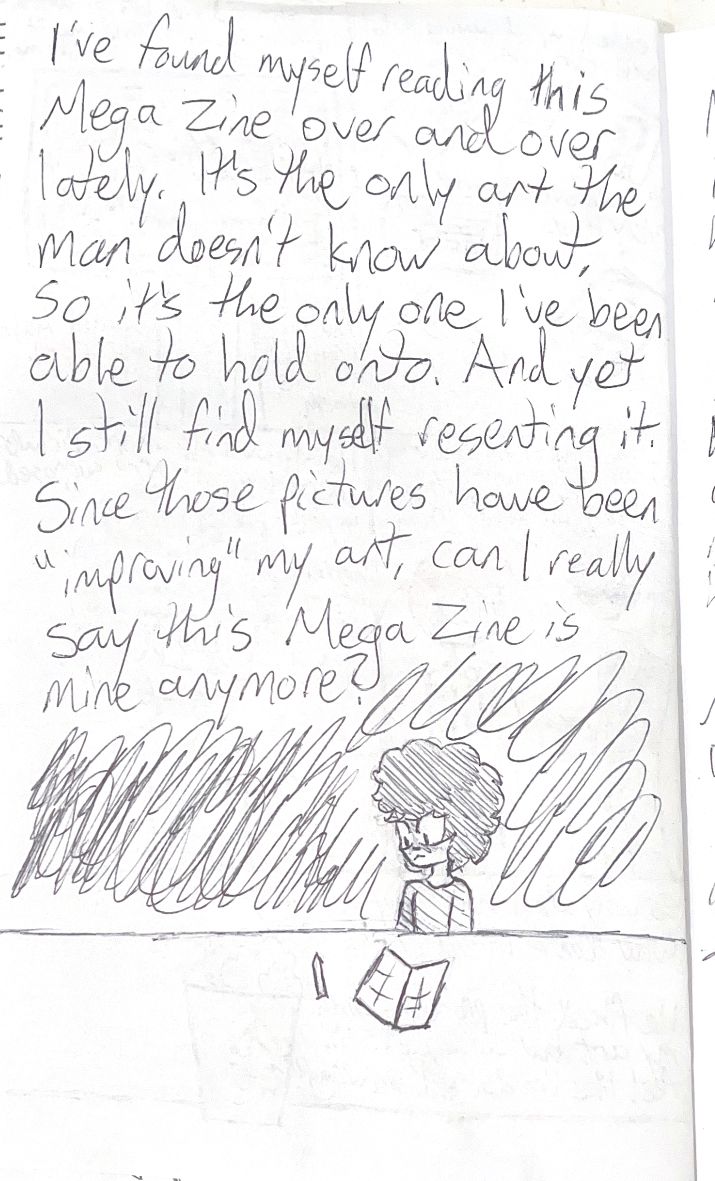 I've found myself reading this
Mega Zine over and over
lately. It's the only art the
man doesn't know about,
So it's the only one I've been
able to hold onto. And yet
I still find myself resenting it.
Since those pictures have been
"improving" my art, can I really
say this Mega Zine is
mine anymore?